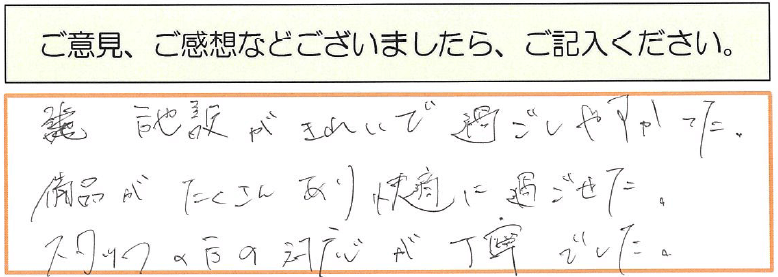 ご意見、ご感想などございましたら、ご記入ください。
施設がきれいで過ごしやすかった。
備品がたくさんあり快適に過ごせた。
スタッフの方の対応が丁寧でした。